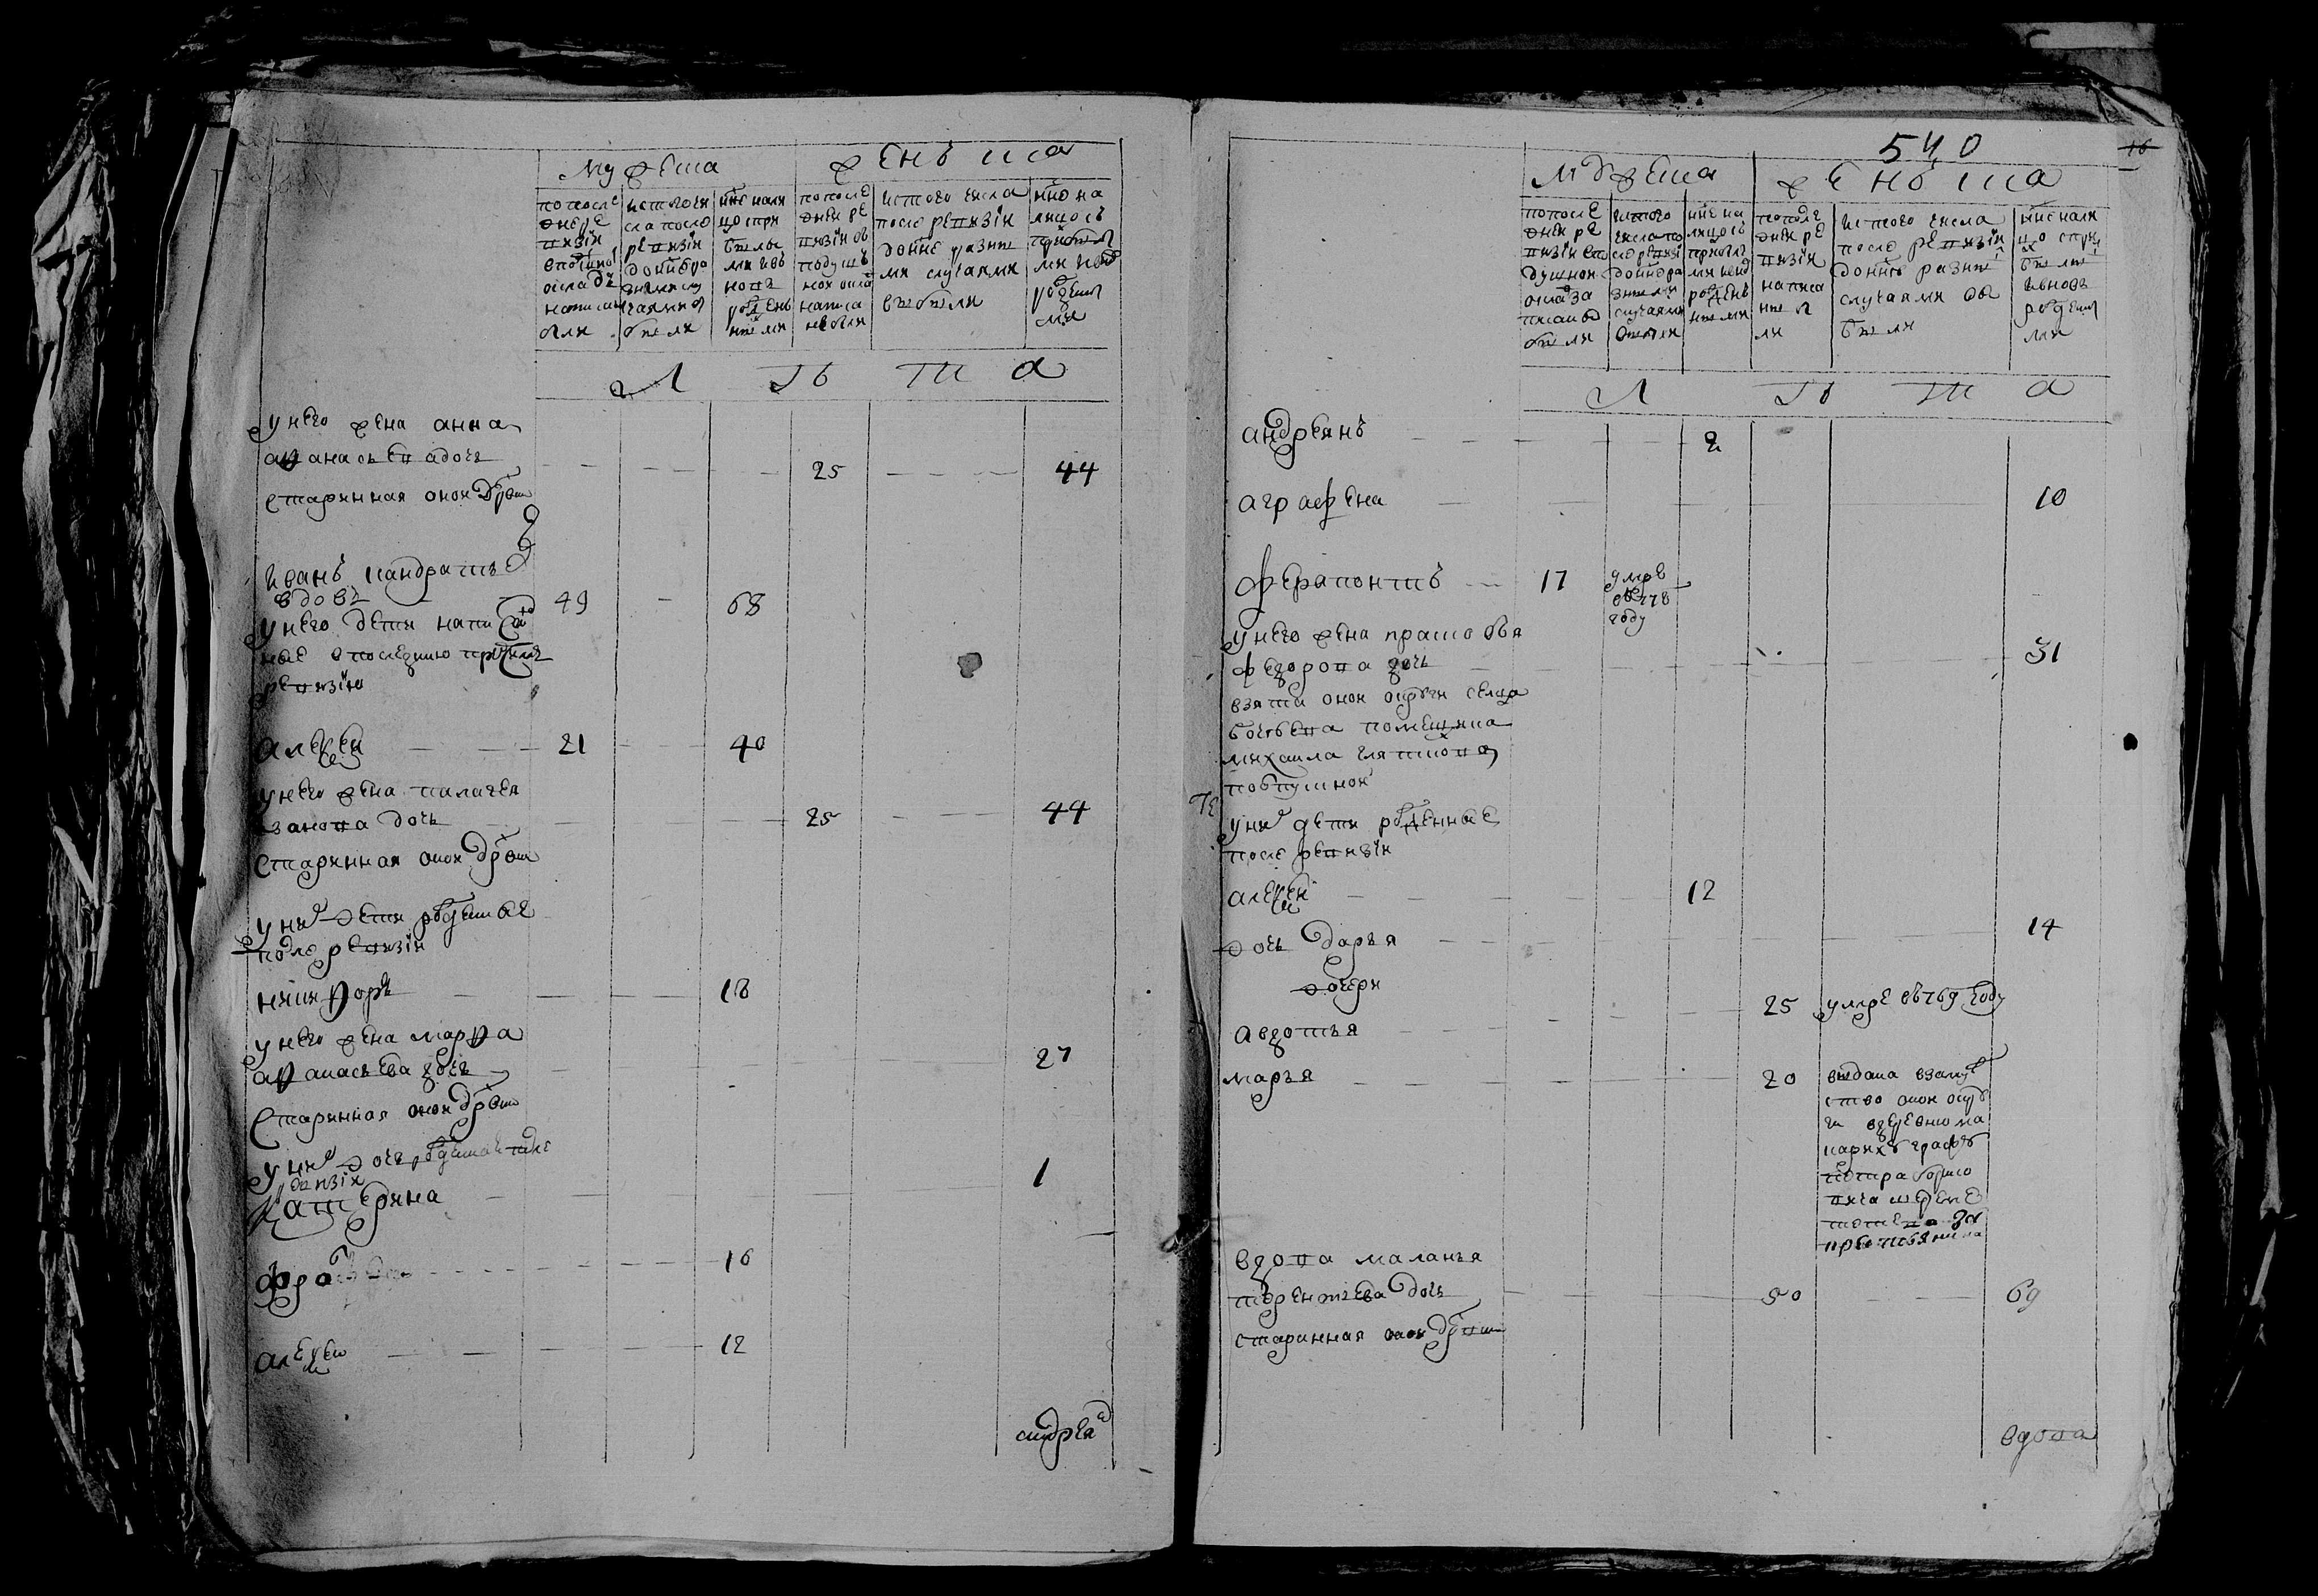 мужеска
женъска
по после
дней ре
визіи
в подушно
окладъ
написан
были
ис того чи
сла после
ревизіи
до ныне ра
зными слу
чаями
были
ныне нали
цо с при
былы
ми и въ
новь
рожден
ными
по после
дней ре
визіи въ
подушъ
ной окла
написа
ны были
ис того числа
после ревизіи
до ныне разны
ми случаями
выбыли
ныне на
лицо съ
прибылы
ми и внов
рожденны
ми
л ѣ т а
у него жена анна
афанасьева дочь
старинная оной дрвни
25
44
иванъ кандратьев
вдовъ
49
68
у него дети написан
ные в последнюю пред сим
ревизию
алексей
21
40
у него жена палагея
иванова дочь
25
44
старинная оной дрвни
у них дети рожденные
после ревизіи
никифоръ
18
у него жена марфа
афанасьева дочь
27
старинная оной дрвни
у них дочь рожденная после
ревизіи
катерина
1
фро
16
алексей
12
андреян
540
16
мужеска
женъска
по после
дней ре
визіи в по
душной
оклад за
писаны
были
ис того
числа по
сле ревизі
до ныне ра
зными
случаями
выбыли
ныне на
лицо съ
прибылы
ми и внов
рожден
ными
по после
дней ре
визіи
написа
ны бы
ли
ис того числа
после ревизіи
до ныне разны
случаями вы
были
ныне нали
цо с при
былы
и вновь
рожденны
ми
л ѣ т а
андреянъ
2
аграфена
10
ферапонтъ
17
умре
въ 778
году
у него жена прасковья
федорова дочь
31
взята оной округи селца
помещика
михаила
покупкой
у них дети рожденные
после ревизіи
алексей
12
дочь дарья
14
дочери
авдотья
25
умре въ 769 году
марья
20
выдана в замуже
ство оной окру
ги в деревню ма
карих графа
петра борисо
вича шереме
тева за
крестьянина
вдова маланья
терентьева дочь
50
69
старинная оной дрвни
вдова